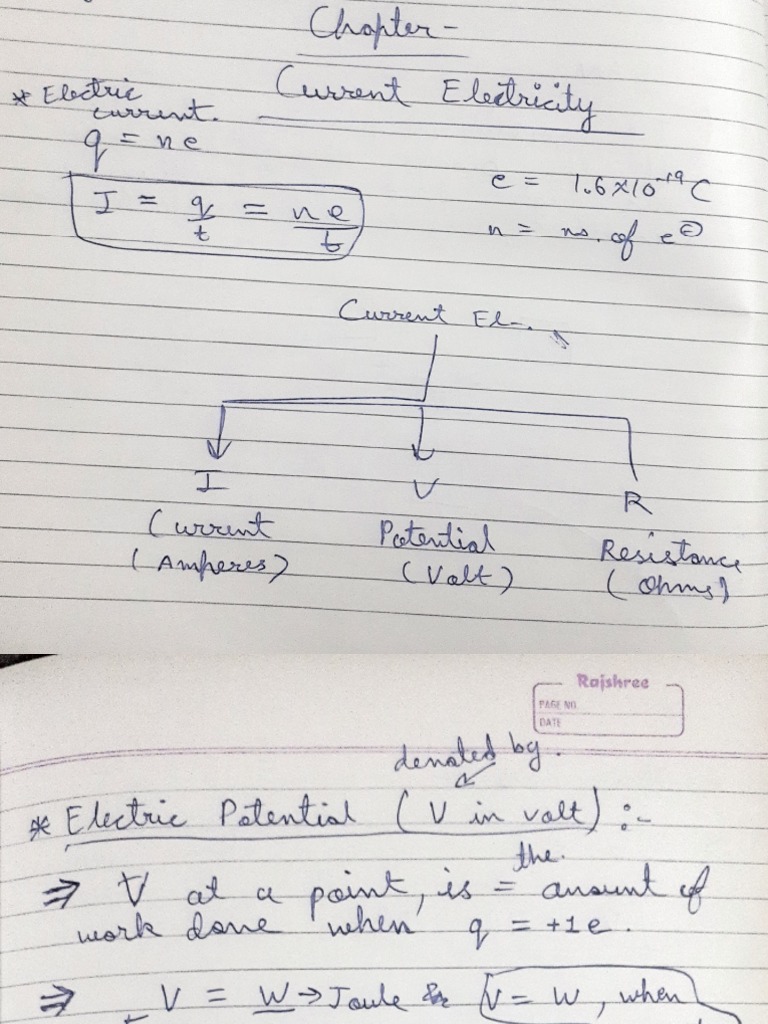 Chapter-
Current Electricity
* Electric
current.
q = ne
I = q/t = ne/t
e = 1.6×10⁻¹⁹C
n = no. of e⊖
Current El-.
I V R
Current Potential Resistance
(Amperes) (Volt) (Ohms)
Rajshree
PAGE NO.
DATE
denoted by.
* Electric Potential (V in volt) :-
the.
⇒ V at a point, is = amount of
work done when q = +1e.
⇒ V = W → Joule & V = W, when